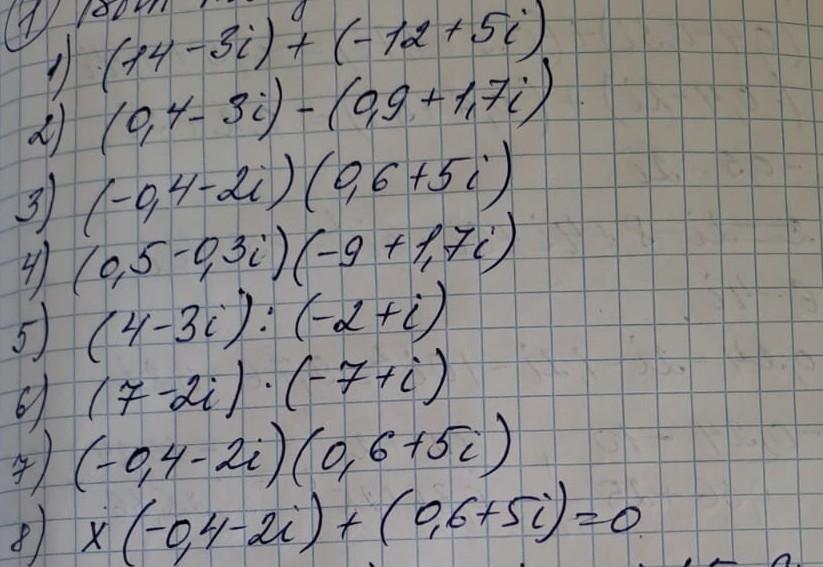 1
1) (14-3i)+(-12+5i)
2) (0,4-3i)-(0,9+1,7i)
3) (-0,4-2i)(0,6+5i)
4) (0,5-0,3i)(-9+1,7i)
5) (4-3i):(-2+i)
6) (7-2i)·(-7+i)
7) (-0,4-2i)(0,6+5i)
8) x(-0,4-2i)+(0,6+5i)=0